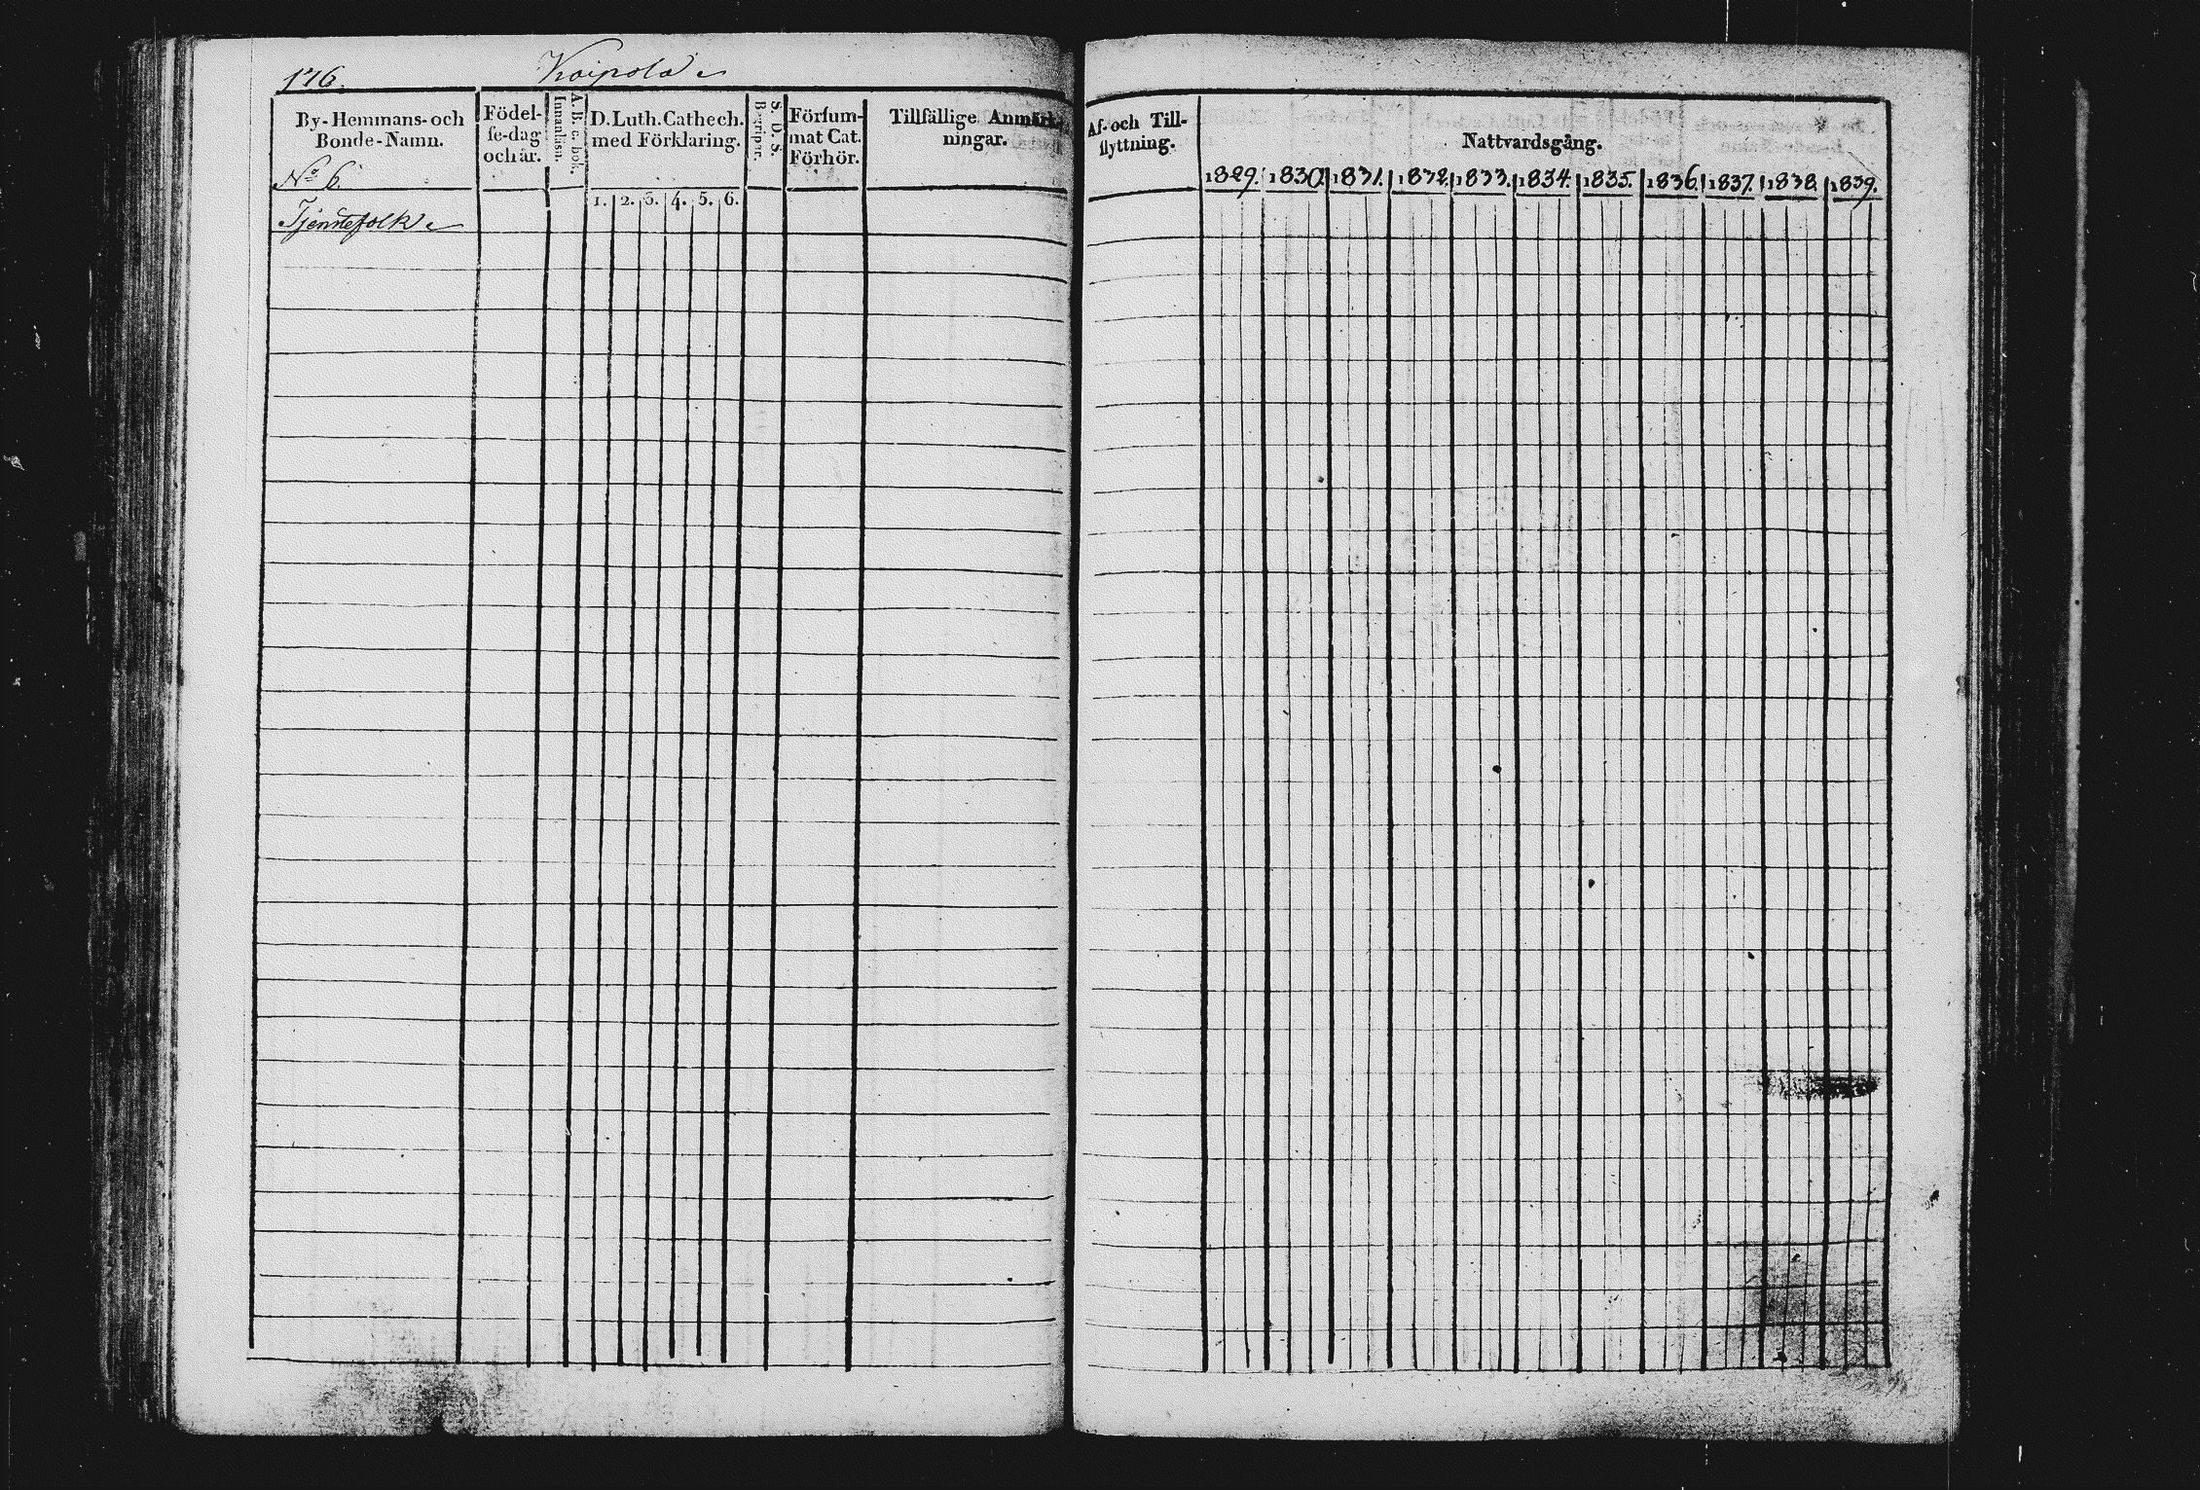 176.
Kaipola
By-Hemmans-och
Bonde-Namn.
No 6.
Födel-
se-dag
och år.
A. B. c. bok.
Innanläsn.
D. Luth. Cathech.
med Förklaring.
1. 2. 3. 4. 5. 6.
S. D. S.
Begriper.
Försum-
mat Cat.
Förhör.
Tillfällige Anmärk-
ningar.
Tjenstefolk
Af- och Till-
flyttning.
Nattvardsgång.
1829. 1830. 1831. 1832. 1833. 1834. 1835. 1836. 1837. 1838. 1839.